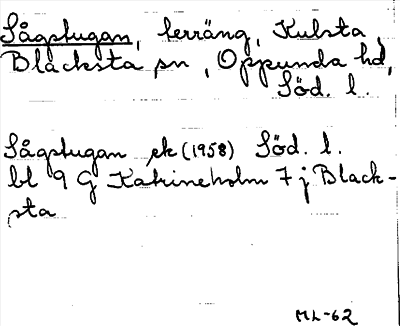 Sågstugan, terräng, Kulsta
Blacksta sn, Oppunda hd,
Söd. l.
Sågstugan ek (1958) Söd. l.
bl 9 G Katrineholm 7 j Black-
sta
ML-62